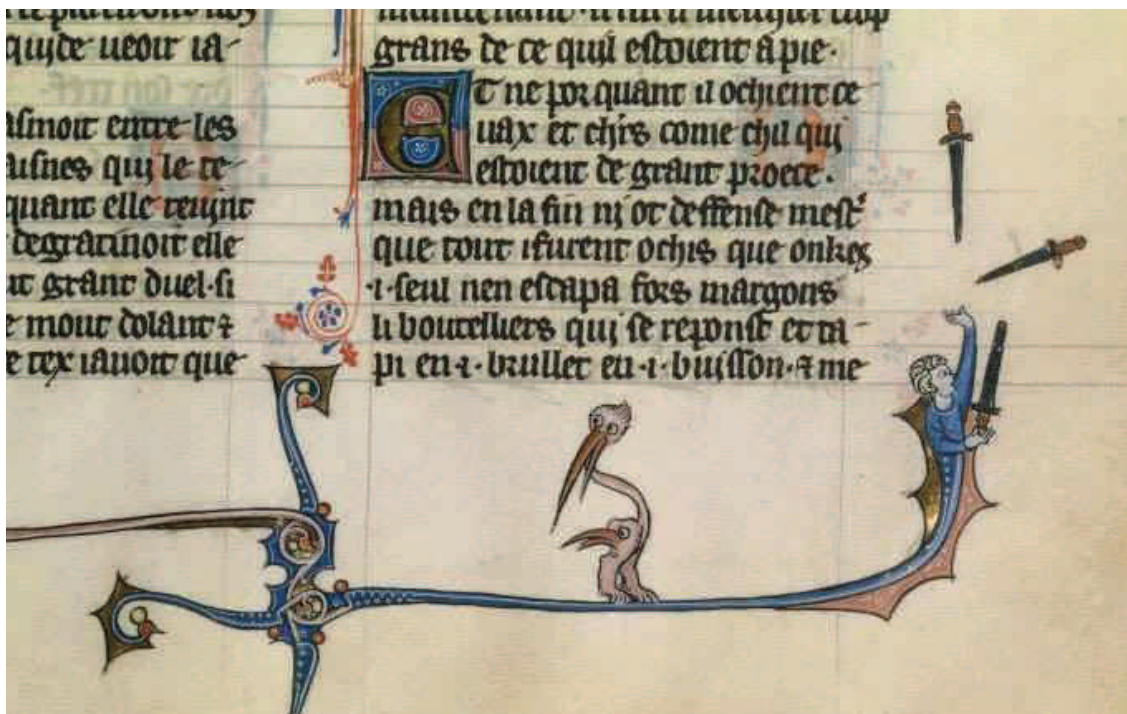 quide ueoir ia
asmoit entre les
aisnes qui le te-
quant elle reuint
degratinoit elle
grant duel·si
e mout dolant ⁊
tex iauoit que
maintenant
grans de ce quil estoient a pie·
Et ne por quant il ochient ce
uax et chrs come chil qui
estoient de grant proece·
mais en la fin ni ot deffense mest'
que tout ifurent ochis que onkes
·i·seul nen escapa fors margons
li boutelliers qui se reponst et ta-
pi en·i·brullet en·i·buisson·⁊ me